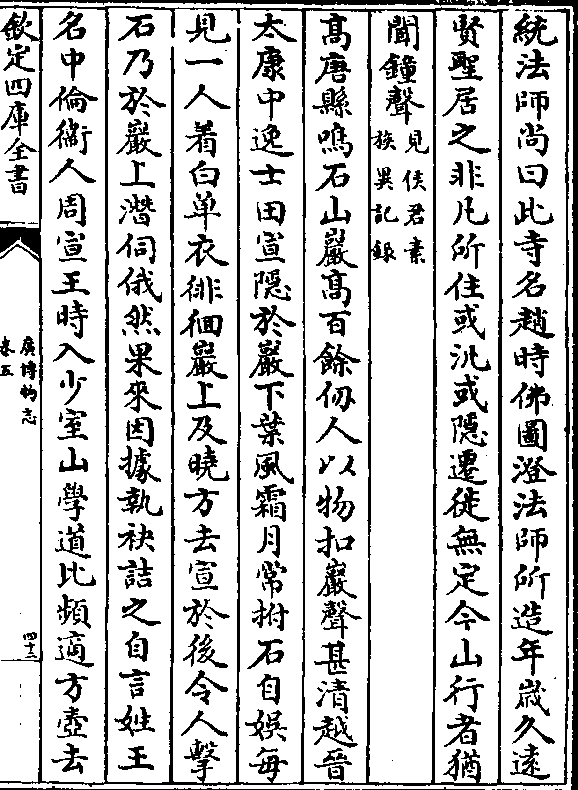 統法師尚曰此寺名趙時佛圖澄法師所造年歲久遠
賢聖居之非凡所住或汎或隱遷徙無定今山行者猶
聞鐘聲見侯君素
族異記録
髙唐縣鳴石山巖髙百餘仞人以物扣巖聲甚清越晉
太康中逸士田宣隱於巖下葉風霜月常拊石自娱每
見一人着白单衣徘徊巖上及曉方去宣於後令人擊
石乃於巖上潛伺俄然果來因據執袂詰之自言姓王
名中倫衛人周宣王時入少室山學道比頻適方壺去
欽定四庫全書
廣博物志
卷五
四十三